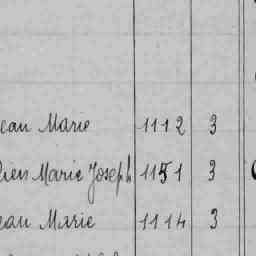 ean Marie 1112 3
lien Marie Joseph 1151 3
ean Marie 1114 3